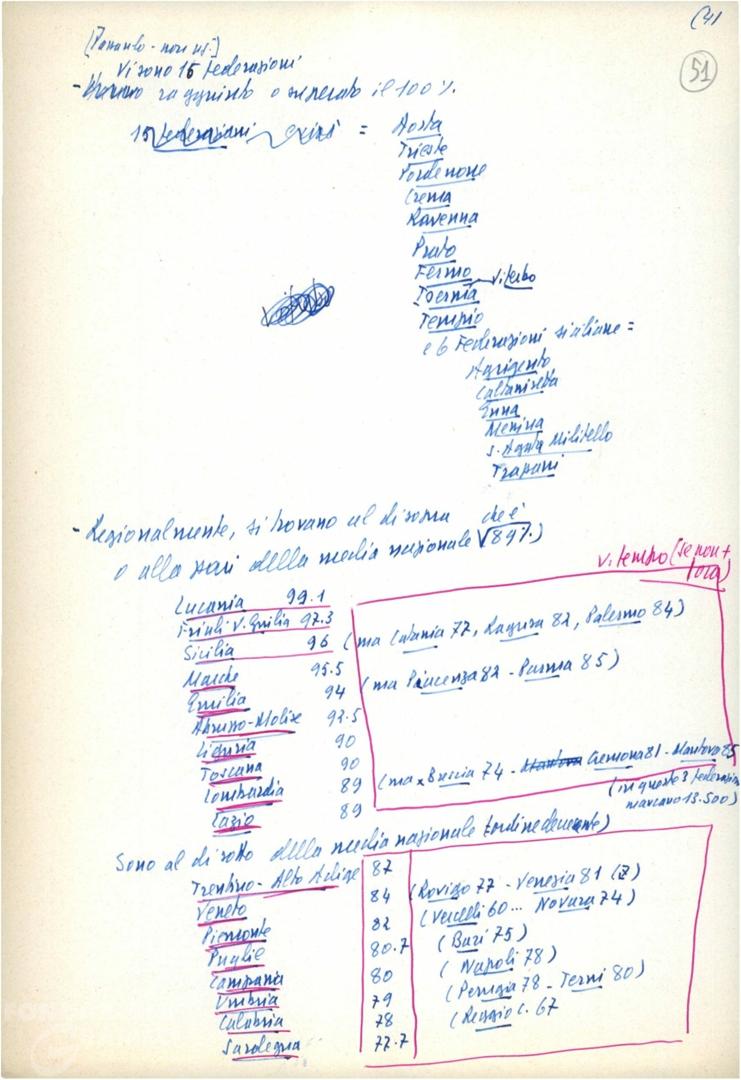 (4)
51
Vi sono 15 Federazioni
- Hanno raggiunto o superato il 100%.
15 Federazioni =
Aosta
Trieste
Pordenone
Crema
Ravenna
Prato
Fermo
Viterbo
Isernia
Tempio
e 6 Federazioni siciliane =
Agrigento
Caltanisetta
Enna
Messina
S. Agata Militello
Trapani
- Regionalmente, si trovano al disopra
o alla pari della media nazionale (che è 89%.)
V. tempo (se non + tora)
Lucania 99.1
Friuli V. Giulia 97.3
Sicilia 96 (ma Catania 77, Ragusa 82, Palermo 84)
Marche 95.5
Emilia 94 (ma Piacenza 82 - Parma 85)
Abruzzo-Molise 92.5
Liguria 90
Toscana 90
Lombardia 89 (ma x Brescia 74 - Mantova Cremona 81 - Mantova 85
Lazio 89 (in queste 3 federazioni
mancano 13.500)
Sono al disotto della media nazionale
Trentino-Alto Adige 87
Veneto 84 (Rovigo 77 - Venezia 81 (?)
Piemonte 82 (Vercelli 60... Novara 74)
Puglie 80.7 (Bari 75)
Campania 80 (Napoli 78)
Umbria 79 (Perugia 78 - Terni 80)
Calabria 78 (Reggio C. 67
Sardegna 77.7